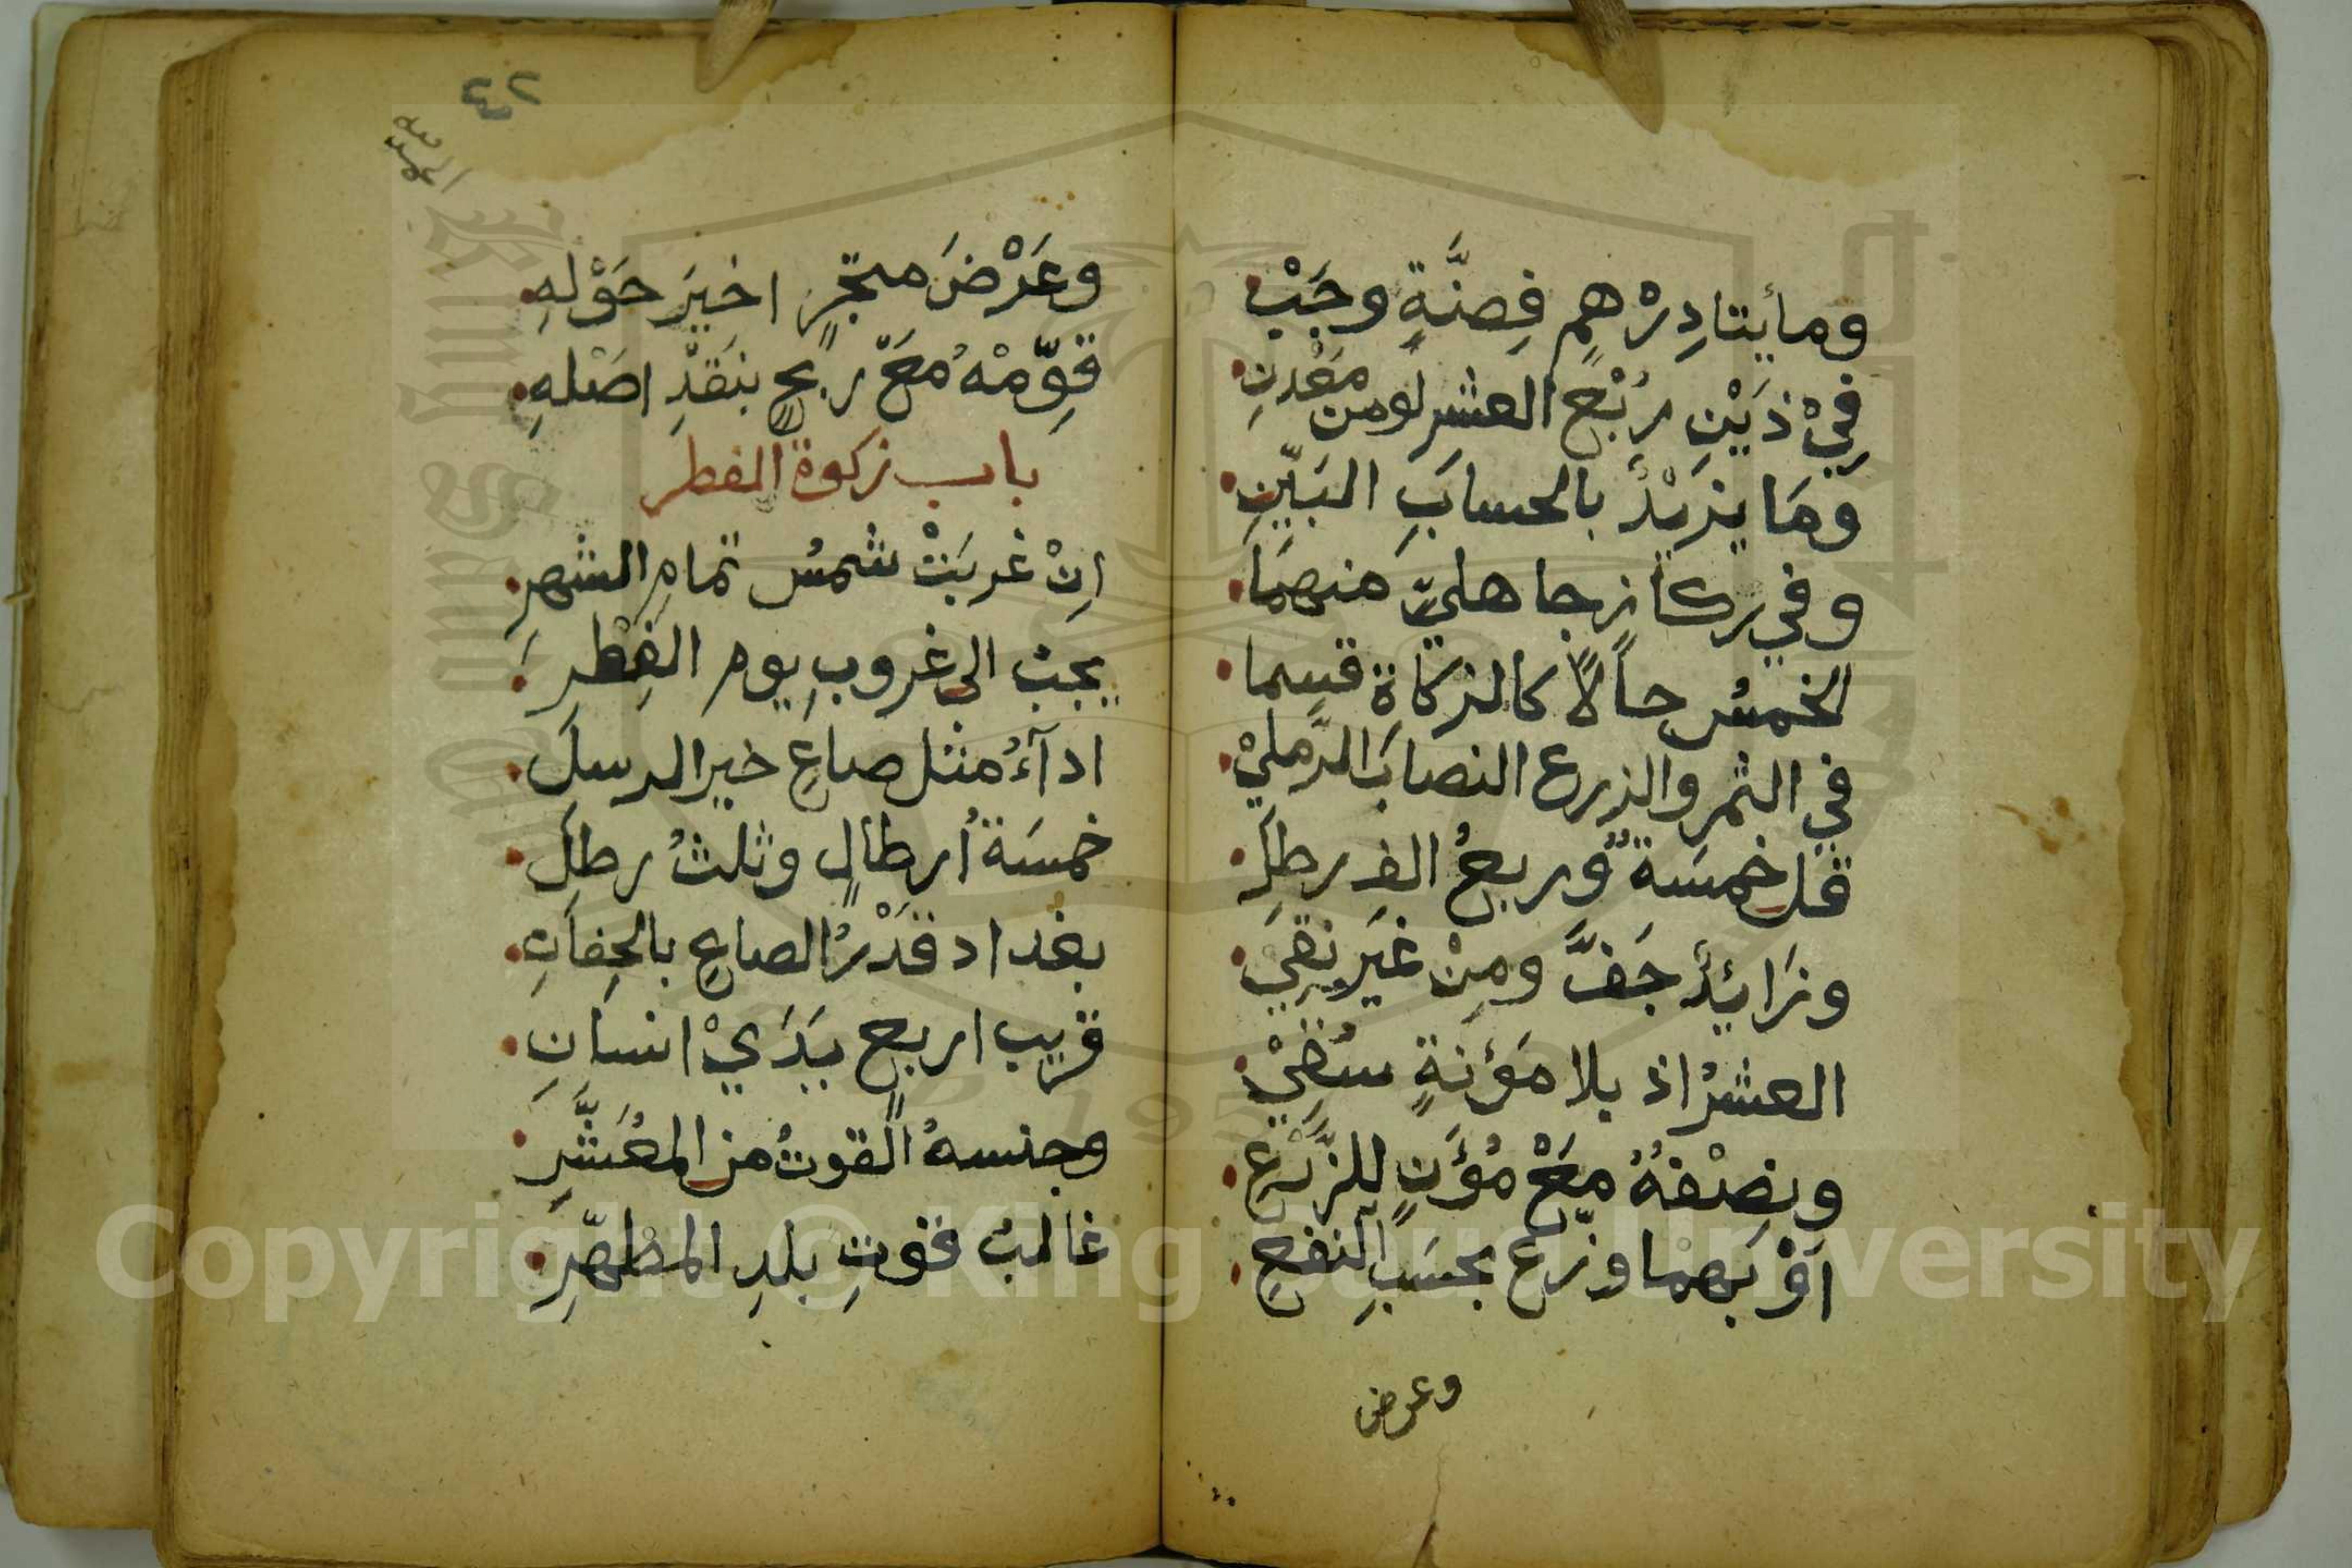 ومأيتا دِرْهمٍ فِضَّةٍ وجَبْ
فِيْ ذَيْنِ رُبْعُ العشرِ لو من مَعْدِنِ
وَمَا يزيْدُ بالحسابِ البَيِّنِ
وفي ركازٍ جاهليٍّ منهمَا
الخمسُ حالاً كالزكاةِ قسِما
في الثمر والزرع النصابُ الرَّمليْ
قل خمسَةٌ وربعُ الفِ رطلِ
وزَائِدٌ جَفَّ ومِنْ غَيرٍ نقي
العشرُ اذ بلا مَؤنَةٍ سُقِيْ
ونِصْفُهُ مَعْ مُؤَنٍ للزَّرْعِ
اَوْ بَهما وزّعْ بحسَبِ النفعِ
وعرض
٢٣
وعَرْضَ متجَرٍ اخيرَ حَوْلهِ
قوِّمْهُ مَعْ ربحٍ بنقدِ اصَلهِ
باب زكوة الفطر
اِنْ غربَتْ شمسُ تمامِ الشهرِ
يجبُ الى غروبِ يومِ الفِطرِ
ادآءُ مثل صاعِ خير الرسلِ
خمسَةُ أرطالٍ وثلثُ رطلِ
بغداد قَدْرُ الصاعِ بالحِفانِ
قريب اربعٍ يَدَيْ انسانِ
وجنسهُ القوتُ من المعُشَّرِ
غالبُ قوتِ بلدِ المطهّرِ
Copyright © King Saud University